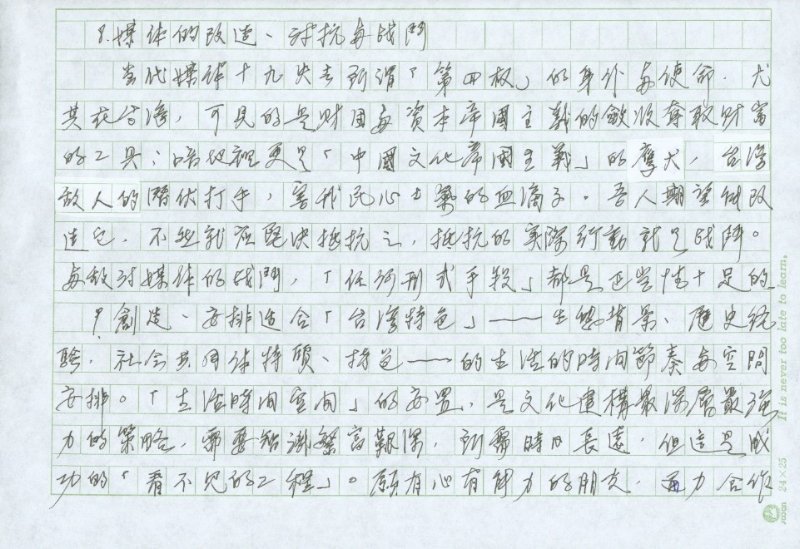 8.媒体的改造、对抗與战鬥
當代媒体十九失去所谓「第四权」的身份與使命。尤
其在台湾，可見的是财团與資本帝國主義的敛收奪取财富
的工具；暗地裡更是「中國文化帝国主義」的鹰犬，台湾
敌人的潛伏打手，害我民心士氣的血滴子。吾人期望能改
造它，不然就应堅决抵抗之，抵抗的実際行動就是战鬥。
與敌对媒体的战鬥，「任何形式手段」都是正當性十足的
9.創造、安排适合「台湾特色」——生態背景、歷史经
驗，社会共同体特质、特色——的生活的時间節奏與空間
安排。「生活時间空间」的安置，是文化建構最深層最強
力的策略，需要 繁富艱深，所需時日長遠，但這是成
功的「看不見的工程」。願有心有能力的朋友， 力合作
It is never too late to learn.
24×25